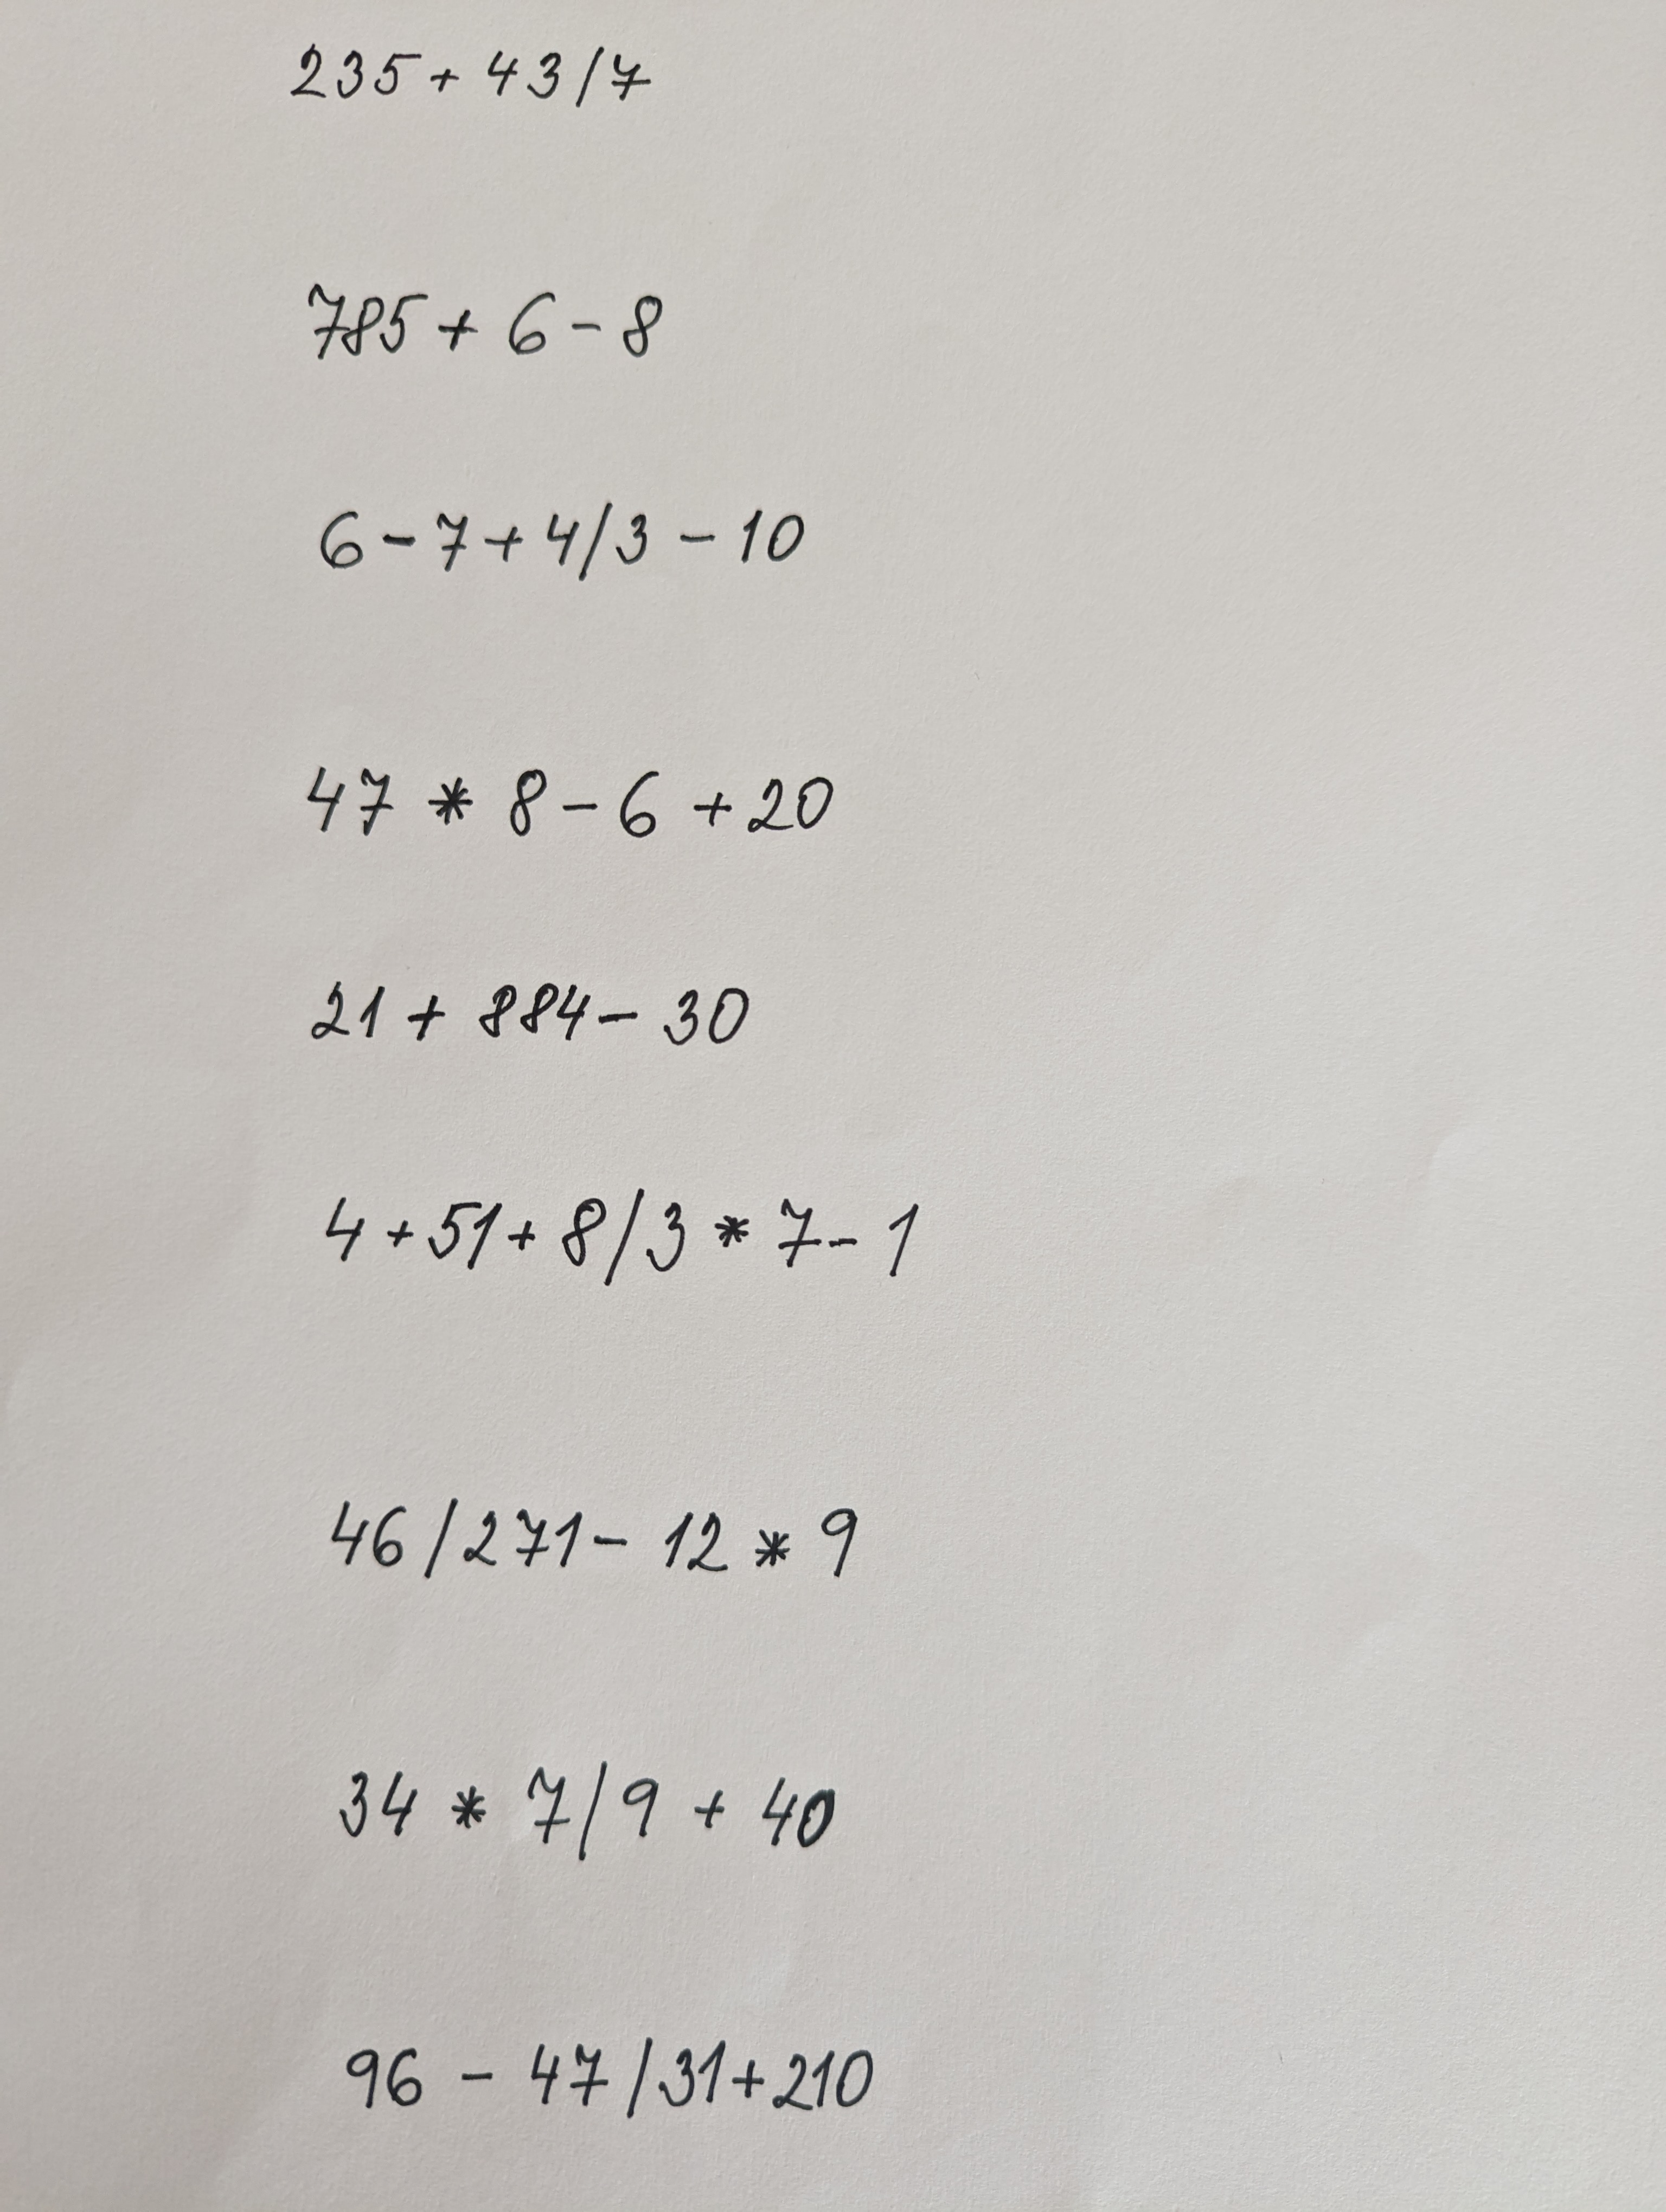 235 + 43 / 7
785 + 6 - 8
6 - 7 + 4 / 3 - 10
47 * 8 - 6 + 20
21 + 884 - 30
4 + 51 + 8 / 3 * 7 - 1
46 / 271 - 12 * 9
34 * 7 / 9 + 40
96 - 47 / 31 + 210